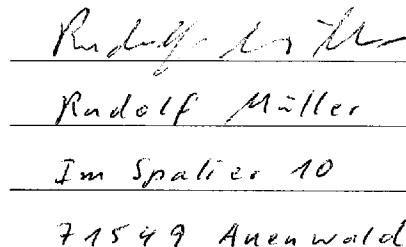 Rudolf Müller
Rudolf Müller
Im Spalier 10
71549 Auenwald